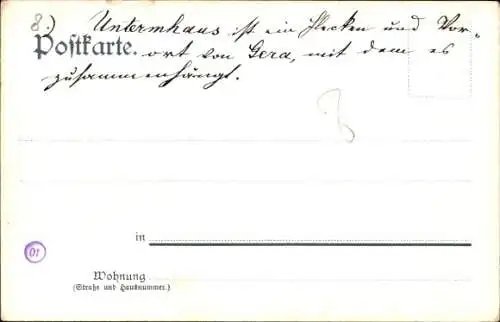 8.) Untermhaus ist ein Flecken und Vor-
Postkarte. ort von Gera, mit dem es
zusammenhängt.
8
in
01
Wohnung
(Straße und Hausnummer.)